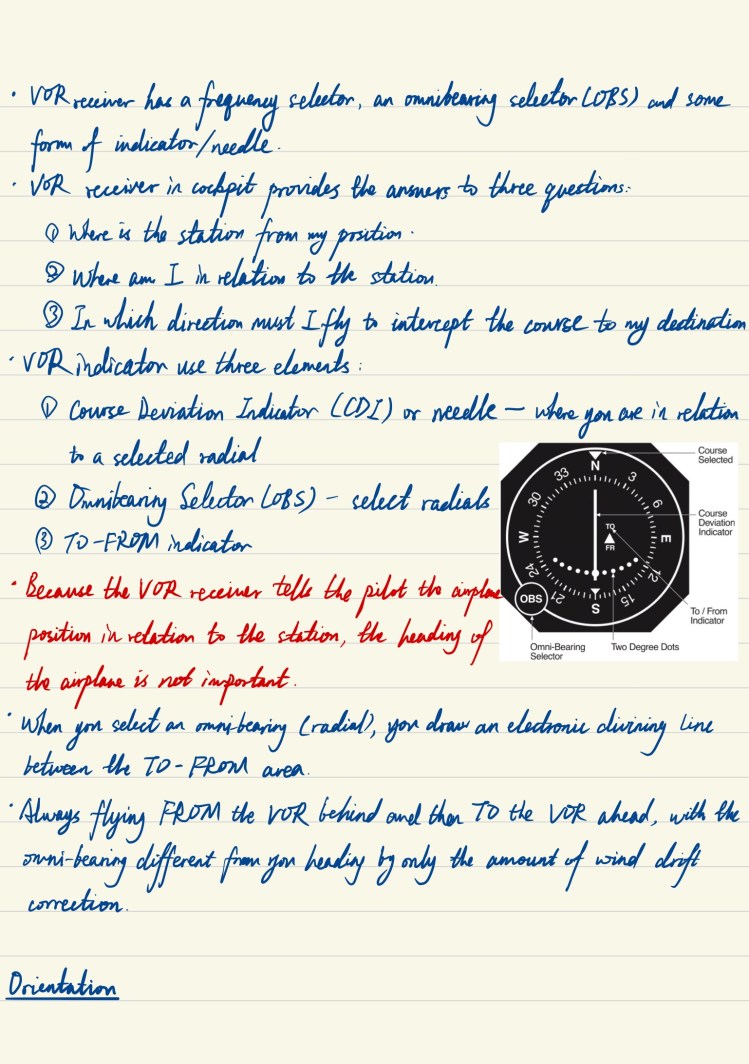 · VOR receiver has a frequency selector, an omnibearing selector (OBS) and some
form of indicator/needle.
· VOR receiver in cockpit provides the answers to three questions:
① Where is the station from my position.
② Where am I in relation to the station.
③ In which direction must I fly to intercept the course to my destination
· VOR indicator use three elements:
① Course Deviation Indicator (CDI) or needle — where you are in relation
to a selected radial
② Omnibearing Selector (OBS) - select radials
③ TO-FROM indicator
Course Selected
Course Deviation Indicator
To / From Indicator
Two Degree Dots
Omni-Bearing Selector
N
3
6
E
12
15
S
21
24
W
30
33
TO
FR
OBS
· Because the VOR receiver tells the pilot the airplane
position in relation to the station, the heading of
the airplane is not important.
· When you select an omni-bearing (radial), you draw an electronic divining line
between the TO-FROM area.
· Always flying FROM the VOR behind and then TO the VOR ahead, with the
omni-bearing different from you heading by only the amount of wind drift
correction.
Orientation